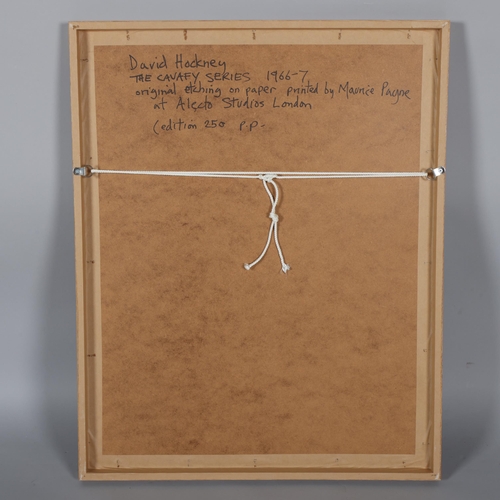 David Hockney
THE CAVAFY SERIES 1966-7
original etching on paper printed by Maurice Payne
at Alecto Studios London
(edition 250 P.P.-